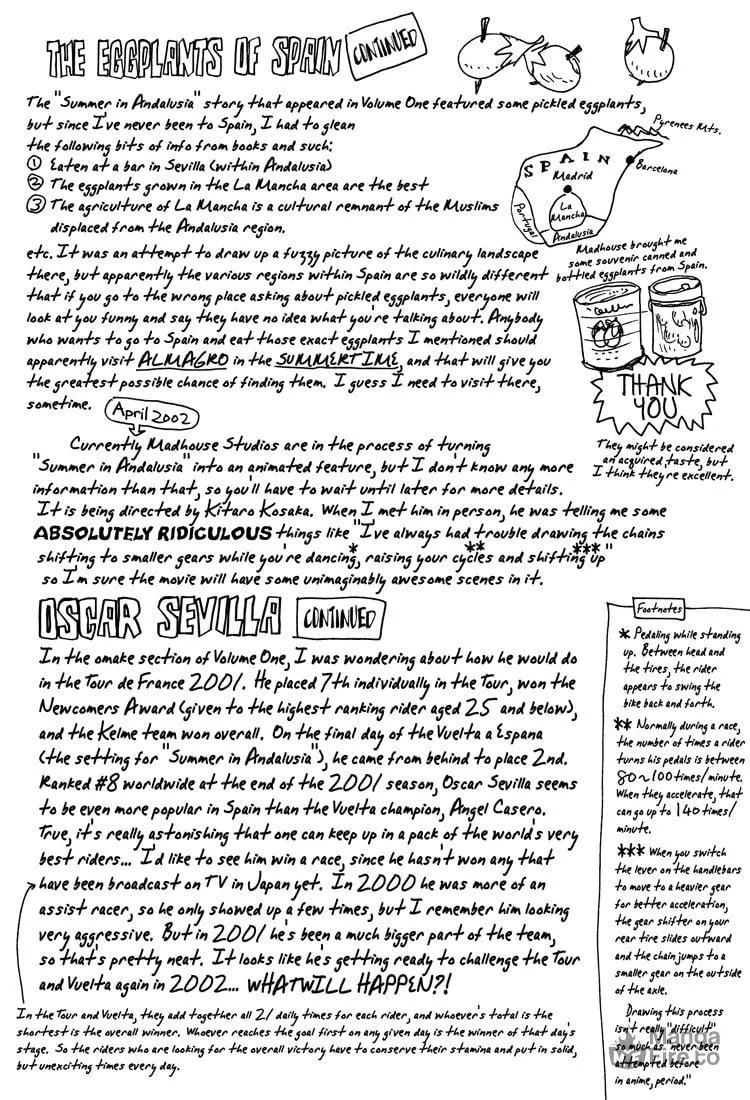 THE EGGPLANTS OF SPAIN CONTINUED
The "Summer in Andalusia" story that appeared in Volume One featured some pickled eggplants,
but since I've never been to Spain, I had to glean
the following bits of info from books and such:
① Eaten at a bar in Sevilla (within Andalusia)
② The eggplants grown in the La Mancha area are the best
③ The agriculture of La Mancha is a cultural remnant of the Muslims
displaced from the Andalusia region.
etc. It was an attempt to draw up a fuzzy picture of the culinary landscape
there, but apparently the various regions within Spain are so wildly different
that if you go to the wrong place asking about pickled eggplants, everyone will
look at you funny and say they have no idea what you're talking about. Anybody
who wants to go to Spain and eat those exact eggplants I mentioned should
apparently visit ALMAGRO in the SUMMERTIME, and that will give you
the greatest possible chance of finding them. I guess I need to visit there,
sometime.
Pyrenees Mts.
SPAIN
Barcelona
Madrid
La
Mancha
Portugal
Andalusia
Madhouse brought me
some souvenir canned and
bottled eggplants from Spain.
THANK
YOU
They might be considered
an acquired taste, but
I think they're excellent.
April 2002
Currently Madhouse Studios are in the process of turning
"Summer in Andalusia" into an animated feature, but I don't know any more
information than that, so you'll have to wait until later for more details.
It is being directed by Kitaro Kosaka. When I met him in person, he was telling me some
ABSOLUTELY RIDICULOUS things like "I've always had trouble drawing the chains
shifting to smaller gears while you're dancing*, raising your cycles** and shifting up***"
so I'm sure the movie will have some unimaginably awesome scenes in it.
OSCAR SEVILLA CONTINUED
In the omake section of Volume One, I was wondering about how he would do
in the Tour de France 2001. He placed 7th individually in the Tour, won the
Newcomers Award (given to the highest ranking rider aged 25 and below),
and the Kelme team won overall. On the final day of the Vuelta a Espana
(the setting for "Summer in Andalusia"), he came from behind to place 2nd.
Ranked #8 worldwide at the end of the 2001 season, Oscar Sevilla seems
to be even more popular in Spain than the Vuelta champion, Angel Casero.
True, it's really astonishing that one can keep up in a pack of the world's very
best riders... I'd like to see him win a race, since he hasn't won any that
have been broadcast on TV in Japan yet. In 2000 he was more of an
assist racer, so he only showed up a few times, but I remember him looking
very aggressive. But in 2001 he's been a much bigger part of the team,
so that's pretty neat. It looks like he's getting ready to challenge the Tour
and Vuelta again in 2002... WHAT WILL HAPPEN?!
In the Tour and Vuelta, they add together all 21 daily times for each rider, and whoever's total is the
shortest is the overall winner. Whoever reaches the goal first on any given day is the winner of that day's
stage. So the riders who are looking for the overall victory have to conserve their stamina and put in solid,
but unexciting times every day.
Footnotes
* Pedaling while standing
up. Between head and
the tires, the rider
appears to swing the
bike back and forth.
** Normally during a race,
the number of times a rider
turns his pedals is between
80~100 times/minute.
When they accelerate, that
can go up to 140 times/
minute.
*** When you switch
the lever on the handlebars
to move to a heavier gear
for better acceleration,
the gear shifter on your
rear tire slides outward
and the chain jumps to a
smaller gear on the outside
of the axle.
Drawing this process
isn't really "difficult"
so much as "never been
attempted before
in anime, period."
Manga
Fire.to